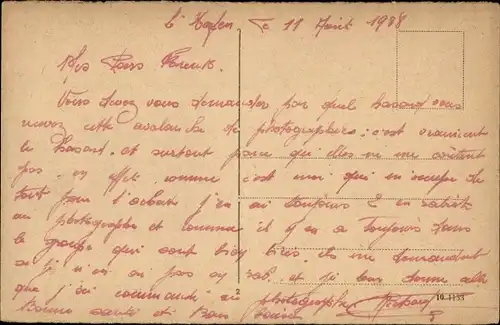 Le 11 Août 1938
Mes Chers Parents.
Vous devez vous demander par quel hasard vous
recevez cette avalanche de photographies; c'est vraiment
le hasard, et surtout parce qu'elles ne me coûtent
pas, en effet, comme c'est moi qui m'occupe de
tout pour l'achat j'en ai toujours 2 en rabiot
au photographe et comme il y en a toujours dans
le groupe qui sont bien tirés, ils me demandent
si je n'en ai pas au rab. et je leur donne celle
que j'ai commandé au photographe
Bonne santé et Bons baisers
2